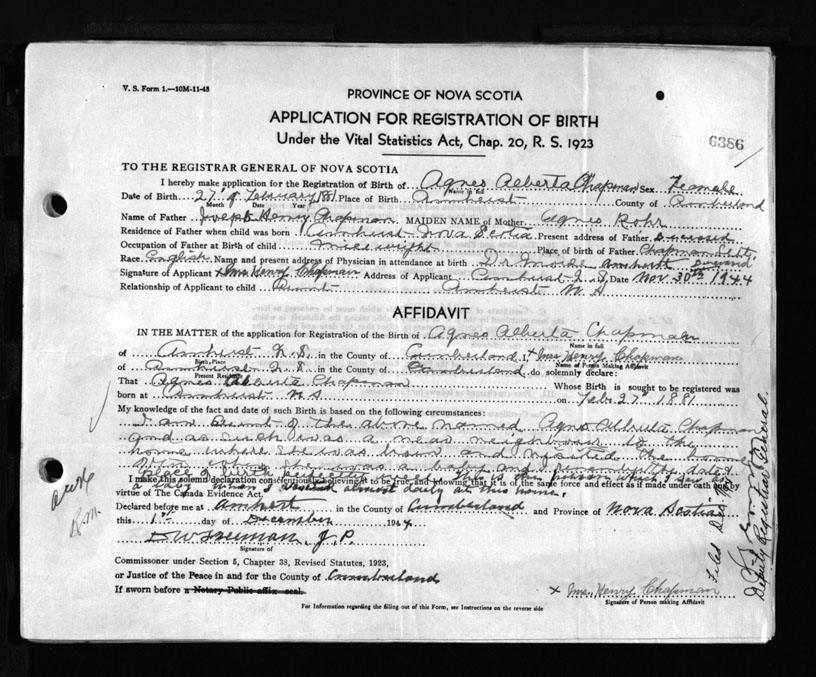 V. S. Form 1.—10M-11-43
PROVINCE OF NOVA SCOTIA
APPLICATION FOR REGISTRATION OF BIRTH
Under the Vital Statistics Act, Chap. 20, R. S. 1923
6386
TO THE REGISTRAR GENERAL OF NOVA SCOTIA
I hereby make application for the Registration of Birth of Agnes Alberta Chapman Sex Female
Date of Birth 27 of February 1881 Place of Birth Amherst County of Cumberland
Month Date Year
Name of Father Joseph Henry Chapman MAIDEN NAME of Mother Agnes Rohr
Residence of Father when child was born Amherst Nova Scotia Present address of Father Deceased
Occupation of Father at Birth of child Millwright Place of Birth of Father Chapman Settl.
Race English Name and present address of Physician in attendance at birth Dr Amherst
Signature of Applicant x Mrs Henry Chapman Address of Applicant Amherst N. S. Date Nov 30th 1944
Relationship of Applicant to child Aunt Amherst N S
AFFIDAVIT
IN THE MATTER of the application for Registration of the Birth of Agnes Alberta Chapman
Name in full
of Amherst N.S. in the County of Cumberland x Mrs Henry Chapman
Birth Place Name of Person Making Affidavit
of Amherst N.S. in the County of Cumberland do solemnly declare:
Present Residence
That Agnes Alberta Chapman Whose Birth is sought to be registered was
born at Amherst N S on Feb 27" 1881
My knowledge of the fact and date of such Birth is based on the following circumstances:
I am Aunt of the above named Agnes Alberta Chapman
and as such was a near neighbour to the
home where she was born and visited the home
when she was a baby and remember the date &
place of birth perfectly she is the person which I saw as
I make this solemn declaration conscientiously believing it to be true, and knowing that it is of the same force and effect as if made under oath and by
a baby when I visited almost daily at this home.
virtue of The Canada Evidence Act.
Declared before me at Amherst in the County of Cumberland and Province of Nova Scotia
this 1st day of December 1944
J.P.
Signature of
Commissioner under Section 5, Chapter 38, Revised Statutes, 1923,
or Justice of the Peace in and for the County of Cumberland
If sworn before a Notary Public affix seal.
x Mrs. Henry Chapman
Signature of Person making Affidavit
For Information regarding the filling out of this Form, see Instructions on the reverse side
Filed Dec
Deputy Registrar General.
R.M.